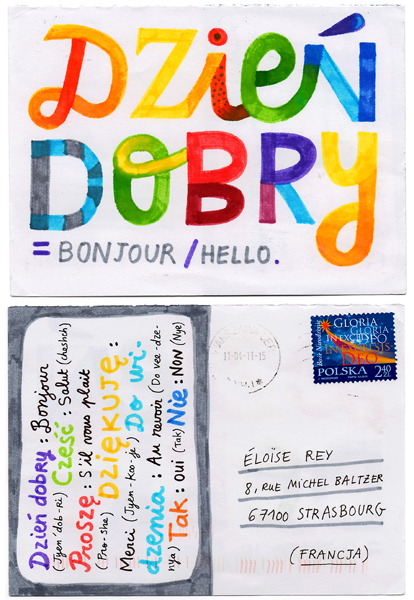 DZIEŃ
DOBRY
= BONJOUR / HELLO.
Dzień dobry : Bonjour
(Jyen' dob-Ri) Cześć : Salut (chashch)
Proszę : S'il vous plait
(Pro-she) DZIĘKUJĘ :
Merci (Jyen-Koo-je) Do wi-
dzenia : Au revoir (Do vee-dze-
nya) Tak : oui (Tak) Nie : NON (Nye)
11-04-11-15
Boże Narodzenie
GLORIA
GLORIA
IN EXCELSIS
DEO
POLSKA 2,40
ÉLOÏSE REY
8, RUE MICHEL BALTZER
67100 STRASBOURG
(FRANCJA)